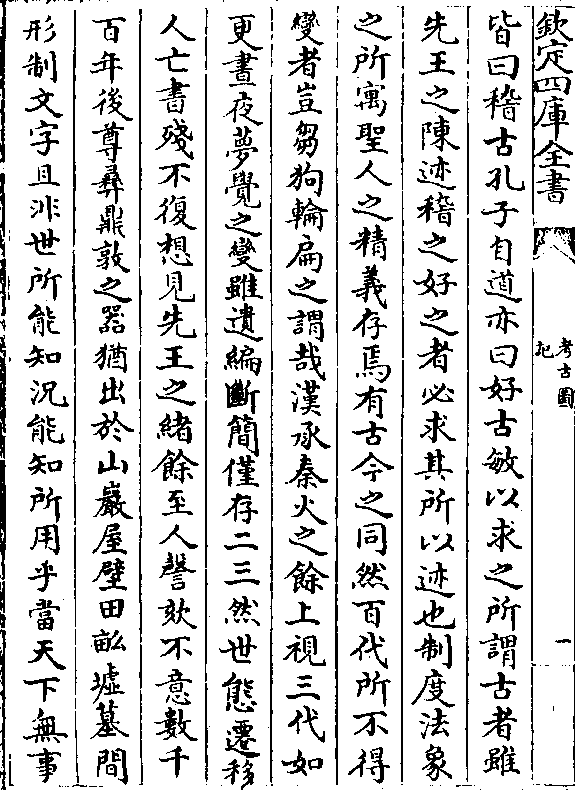 欽定四庫全書
考古圖
記
一
皆曰稽古孔子自道亦曰好古敏以求之所謂古者雖
先王之陳迹稽之好之者必求其所以迹也制度法象
之所寓聖人之精義存焉有古今之同然百代所不得
變者豈芻狗輪扁之謂哉漢承秦火之餘上視三代如
更晝夜夢覺之變雖遺編斷簡僅存二三然世態遷移
人亡書殘不復想見先王之緒餘至人謦欬不意數千
百年後尊彝鼎敦之器猶出於山巖屋壁田畝墟墓間
形制文字且非世所能知況能知所用乎當天下無事